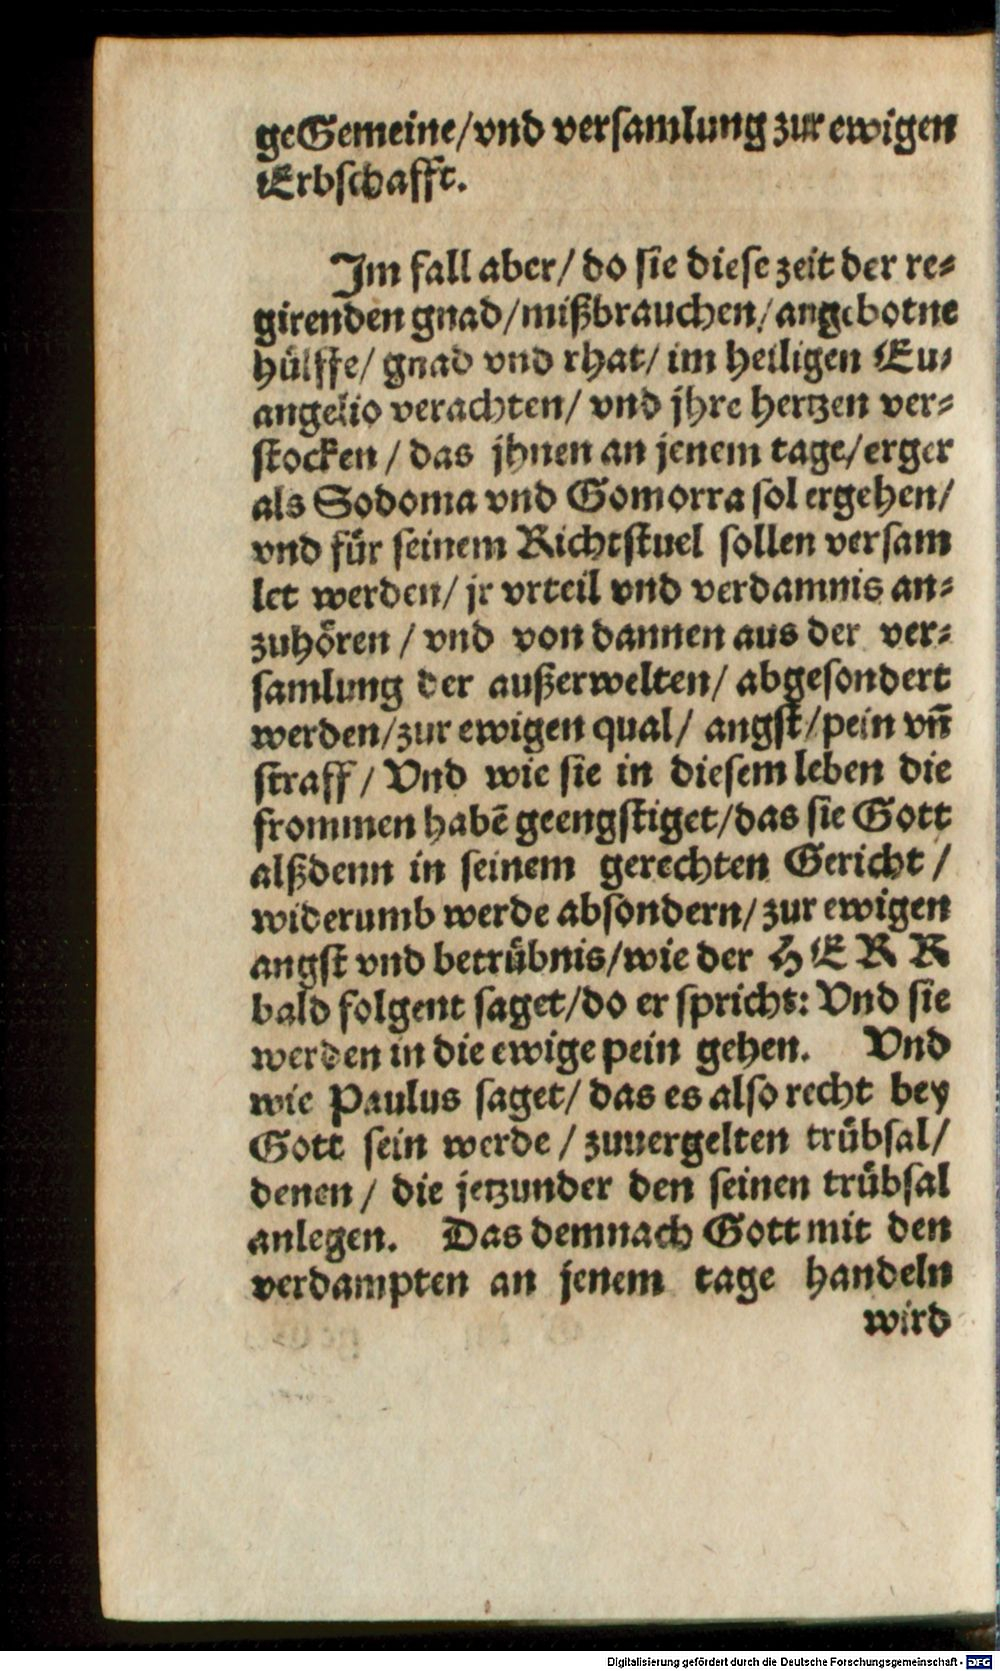 geGemeine/vnd versamlung zur ewigen
Erbschafft.
Im fall aber/ do sie diese zeit der re⸗
girenden gnad/mißbrauchen/angebotne
hülffe/ gnad vnd rhat/ im heiligen Eu⸗
angelio verachten/ vnd jhre hertzen ver⸗
stocken / das jhnen an jenem tage/erger
als Sodoma vnd Gomorra sol ergehen/
vnd für seinem Richtstuel sollen versam
let werden/ jr vrteil vnd verdamnis an⸗
zuhören / vnd von dannen aus der ver⸗
samlung der außerwelten/ abgesondert
werden/zur ewigen qual/ angst/pein vñ
straff / Vnd wie sie in diesem leben die
frommen habē geengstiget/das sie Gott
alßdenn in seinem gerechten Gericht /
widerumb werde absondern/ zur ewigen
angst vnd betrübnis/wie der HERR
bald folgent saget/do er spricht: Vnd sie
werden in die ewige pein gehen. Vnd
wie Paulus saget/ das es also recht bey
Gott sein werde / zuuergelten trübsal/
denen / die jetzunder den seinen trübsal
anlegen. Das demnach Gott mit den
verdampten an jenem tage handeln
wird
Digitalisierung gefördert durch die Deutsche Forschungsgemeinschaft - DFG